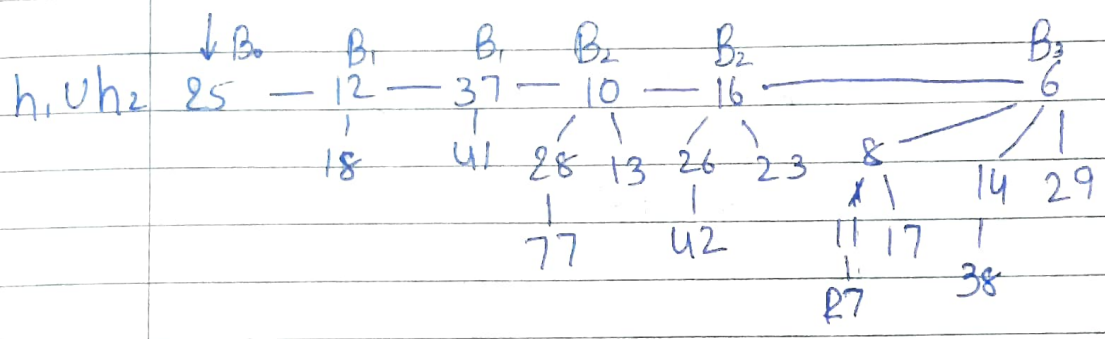 ↓ B₀ B₁ B₁ B₂ B₂ B₃
h₁ ∪ h₂ 25 — 12 — 37 — 10 — 16 — 6
18 41 28 13 26 23 8 14 29
77 42 11 17 38
R7